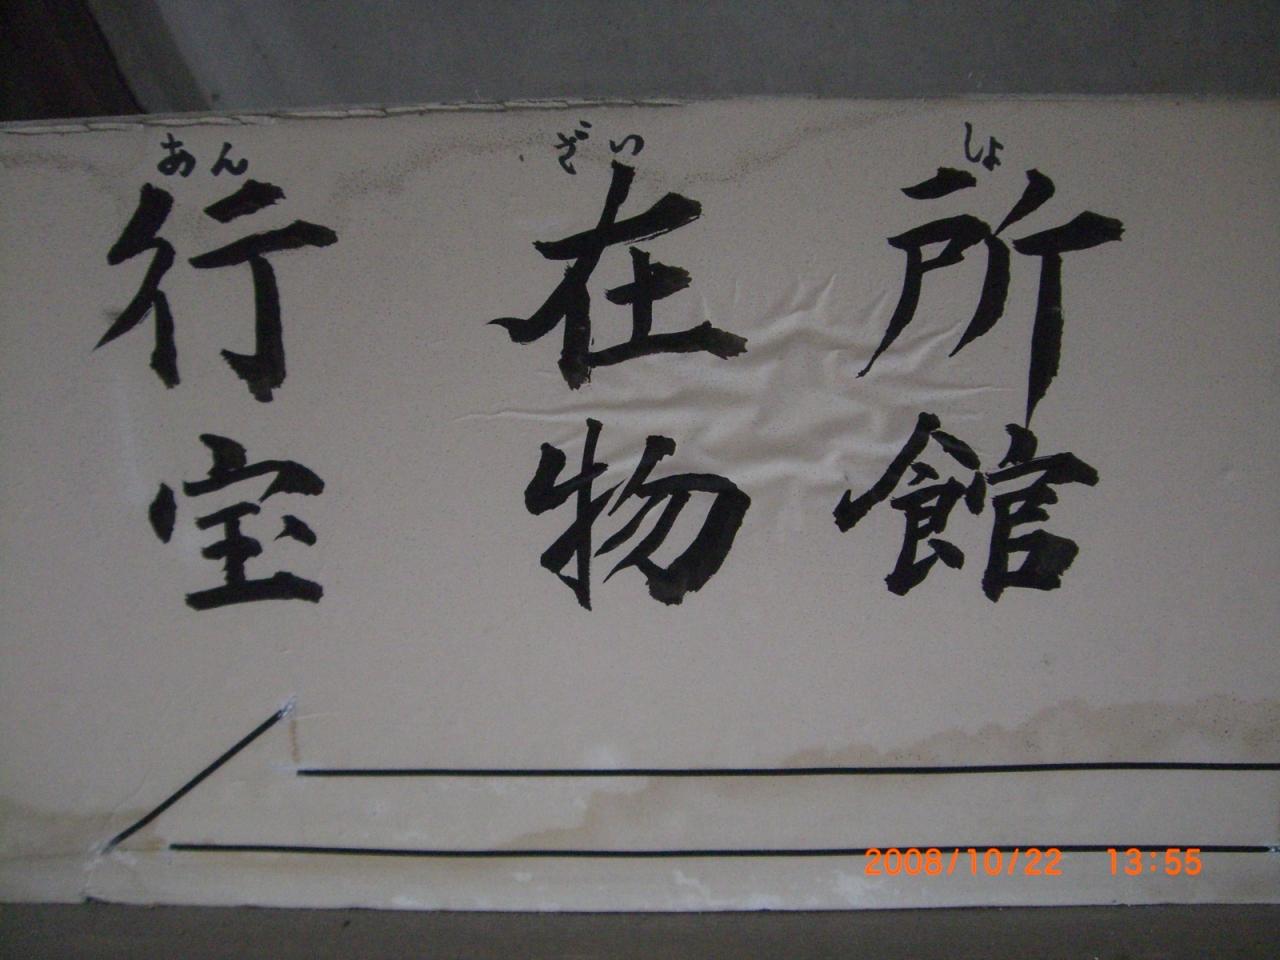 あん ざい しょ
行在所
宝物館
2008/10/22 13:55